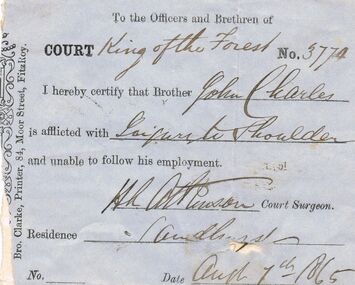 To the Officers and Brethren of
COURT King of the Forest No. 3774
I hereby certify that Brother John Charles
is afflicted with Injury to Shoulder
and unable to follow his employment.
H L Atkinson Court Surgeon.
Residence Sandhurst
No. Date Augt 7th 1865
Bro. Clarke, Printer, 84, Moor Street, Fitzkoy.